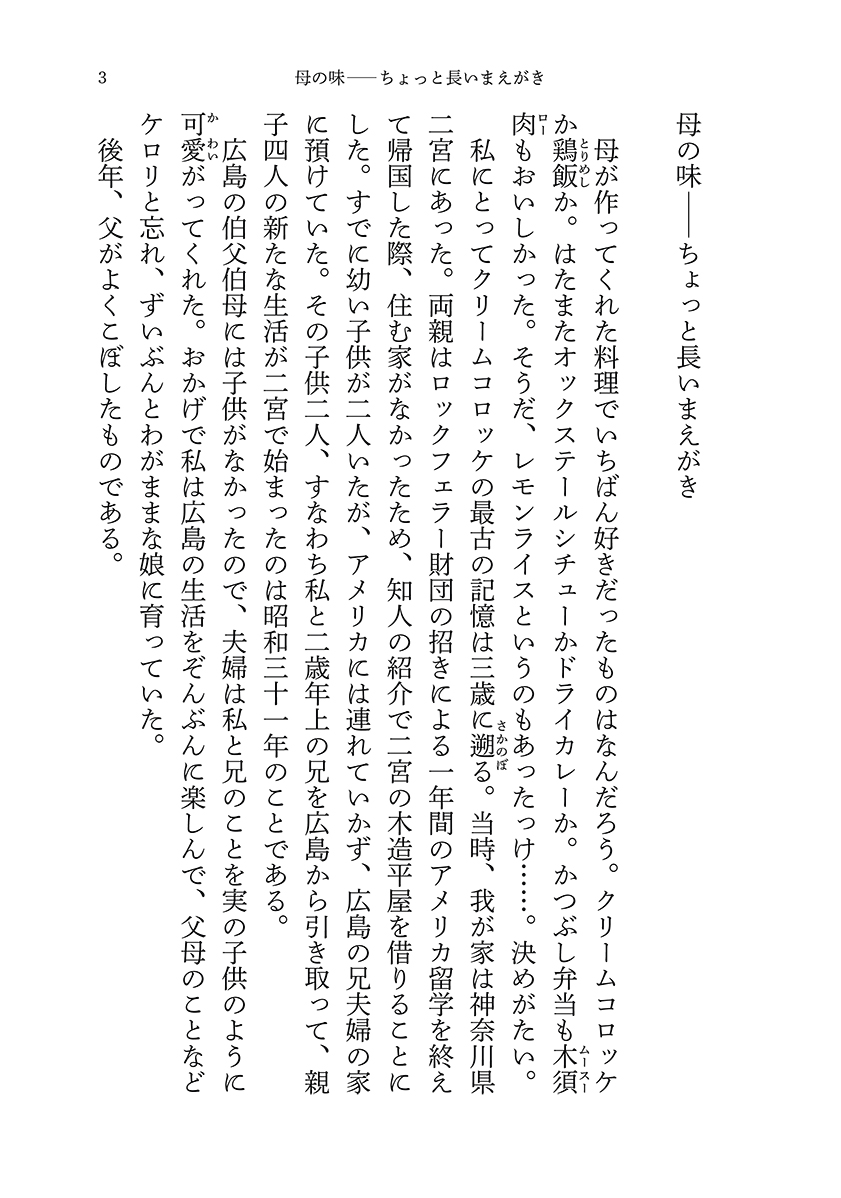 3
母の味――ちょっと長いまえがき
母の味――ちょっと長いまえがき
母が作ってくれた料理でいちばん好きだったものはなんだろう。クリームコロッケ
か鶏飯か。はたまたオックステールシチューかドライカレーか。かつぶし弁当も木須
とりめし
ムースー
肉もおいしかった。そうだ、レモンライスというのもあったっけ……。決めがたい。
ロー
私にとってクリームコロッケの最古の記憶は三歳に遡る。当時、我が家は神奈川県
さかのぼ
二宮にあった。両親はロックフェラー財団の招きによる一年間のアメリカ留学を終え
て帰国した際、住む家がなかったため、知人の紹介で二宮の木造平屋を借りることに
した。すでに幼い子供が二人いたが、アメリカには連れていかず、広島の兄夫婦の家
に預けていた。その子供二人、すなわち私と二歳年上の兄を広島から引き取って、親
子四人の新たな生活が二宮で始まったのは昭和三十一年のことである。
広島の伯父伯母には子供がなかったので、夫婦は私と兄のことを実の子供のように
可愛がってくれた。おかげで私は広島の生活をぞんぶんに楽しんで、父母のことなど
かわい
ケロリと忘れ、ずいぶんとわがままな娘に育っていた。
後年、父がよくこぼしたものである。